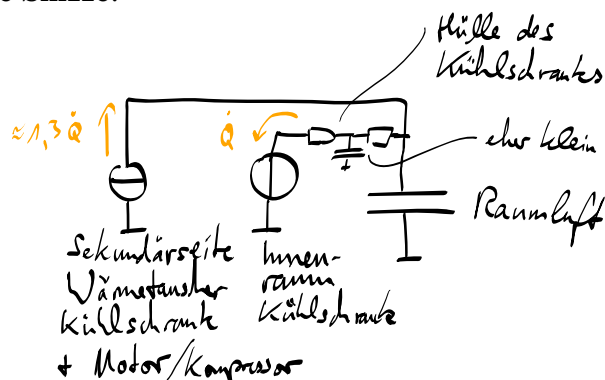 Hülle des
Kühlschrankes
≈1,3 Q̇
Q̇
eher klein
Raumluft
Sekundärseite
Wärmetauscher
Kühlschrank
+ Motor/Kompressor
Innen-
raum
Kühlschrank